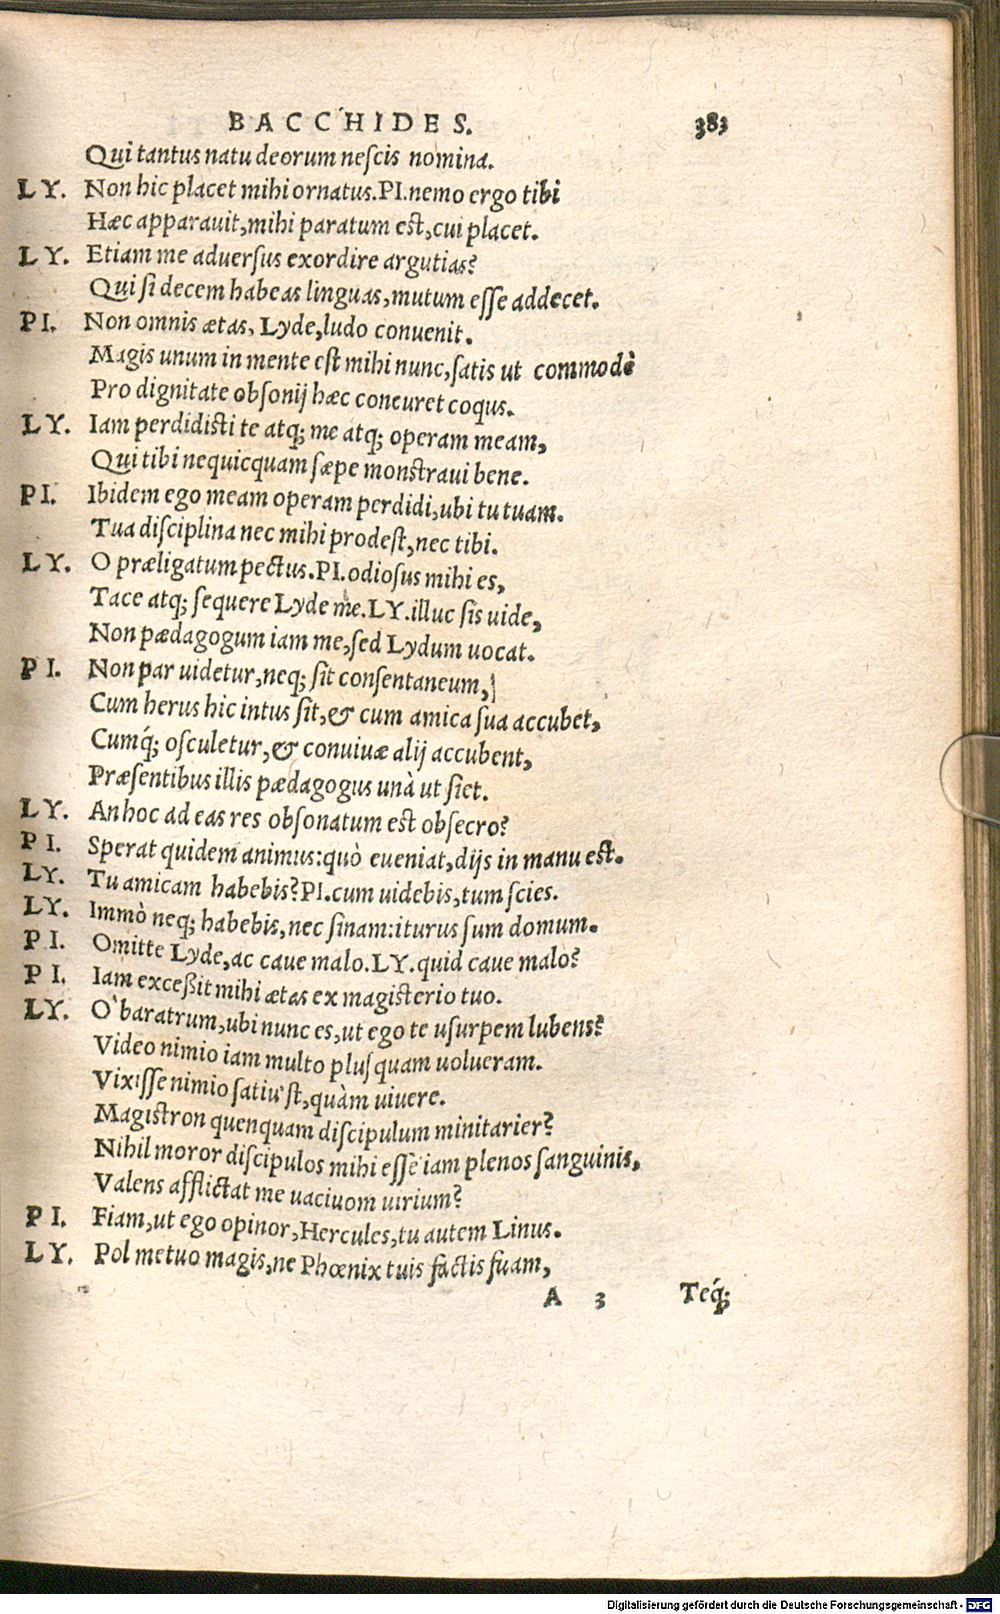 BACCHIDES. 383
Qui tantus natu deorum neſcis nomina.
LY. Non hic placet mihi ornatus. PI. nemo ergo tibi
Hæc apparauit, mihi paratum est, cui placet.
LY. Etiam me aduerſus exordire argutias?
Qui ſi decem habeas linguas, mutum eſſe addecet.
PI. Non omnis ætas, Lyde, ludo conuenit.
Magis unum in mente est mihi nunc, ſatis ut commodè
Pro dignitate obſonij hæc concuret coqus.
LY. Iam perdidisti te atq; me atq; operam meam,
Qui tibi nequicquam ſæpe monstraui bene.
PI. Ibidem ego meam operam perdidi, ubi tu tuam.
Tua diſciplina nec mihi prodest, nec tibi.
LY. O præligatum pectus. PI. odioſus mihi es,
Tace atq; ſequere Lyde me. LY. illuc ſis uide,
Non pædagogum iam me, ſed Lydum uocat.
PI. Non par uidetur, neq; ſit conſentaneum,
Cum herus hic intus ſit, & cum amica ſua accubet,
Cumq́; oſculetur, & conuiuæ alij accubent,
Præſentibus illis pædagogus unà ut ſiet.
LY. An hoc ad eas res obſonatum est obſecro?
PI. Sperat quidem animus: quò eueniat, dijs in manu est.
LY. Tu amicam habebis? PI. cum uidebis, tum ſcies.
LY. Immò neq; habebis, nec ſinam: iturus ſum domum.
PI. Omitte Lyde, ac caue malo. LY. quid caue malo?
PI. Iam exceßit mihi ætas ex magisterio tuo.
LY. O` baratrum, ubi nunc es, ut ego te uſurpem lubens?
Video nimio iam multo pluſquam uolueram.
Vixiſſe nimio ſatiu'ſt, quàm uiuere.
Magistron quenquam diſcipulum minitarier?
Nihil moror diſcipulos mihi eſſe iam plenos ſanguinis,
Valens afflictat me uaciuom uirium?
PI. Fiam, ut ego opinor, Hercules, tu autem Linus.
LY. Pol metuo magis, ne Phœnix tuis factis fuam,
A 3 Teq́;
Digitalisierung gefördert durch die Deutsche Forschungsgemeinschaft - DFG